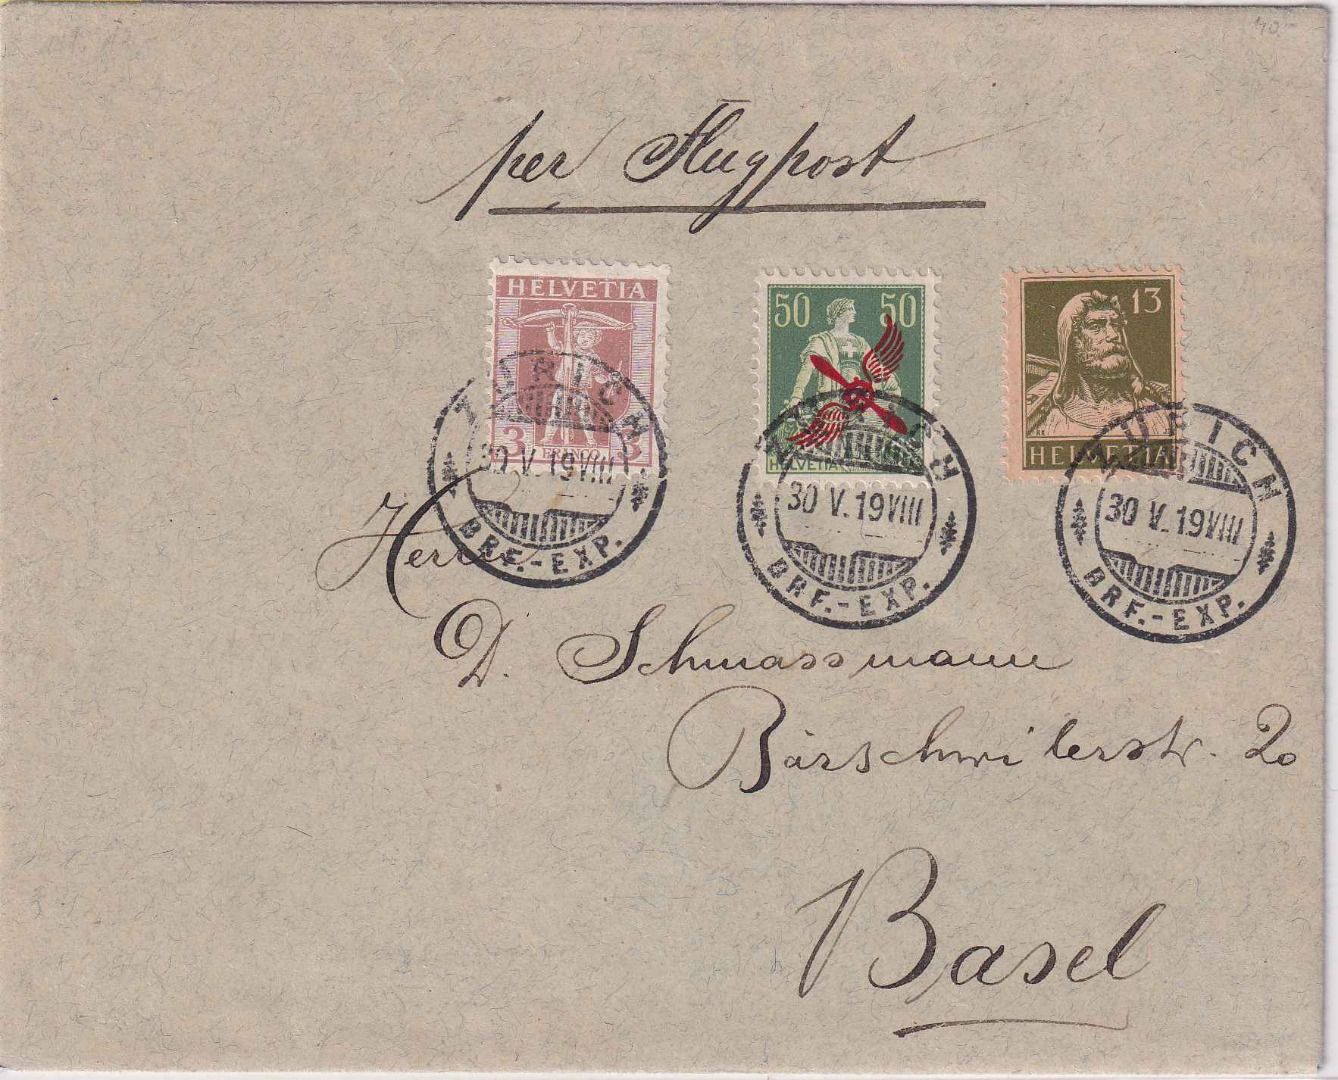 per Flugpost
HELVETIA
3 3
FRANCO
50 50
HELVETIA
13
HELVETIA
ZÜRICH
30 V. 19 VIII
BRF.-EXP.
ZÜRICH
30 V. 19 VIII
BRF.-EXP.
ZÜRICH
30 V. 19 VIII
BRF.-EXP.
Herrn
D. Schmassmann
Bärschwilerstr. 20
Basel